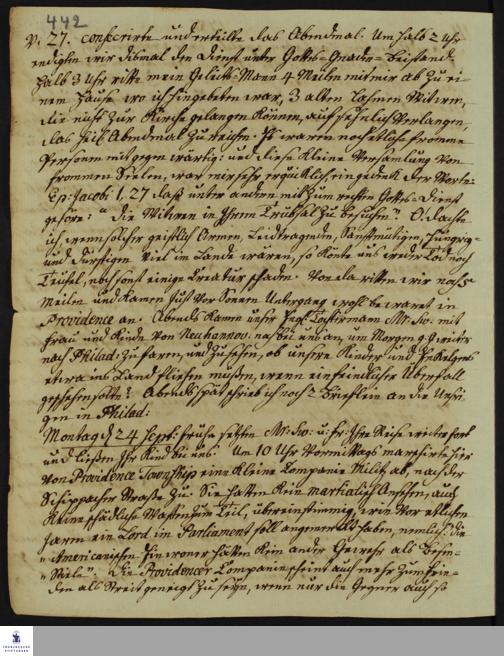 442
v. 27. consecrirte und erteilte das Abendmal. Um halb 2 Uhr
endigten wir dismal den Dienst unter Gottes-Gnade-Beistand.
Halb 3 Uhr ritte mein Geleits-Mann 4 Meilen mit mir ab zu ei-
nem Hause wo ich hingebeten war, 3 alten lahmen Witwen,
die nicht zur Kirche gelangen können, auf sehnlich Verlangen,
das heil. Abendmal zu reichen. Es waren noch etliche fromme
Personen mit gegenwärtig: und diese kleine Versamlung von
frommen Seelen, war mir sehr erquicklich eingedenk der Worte
Ep: Jacobi 1, 27 daß unter andern mit zum rechten Gottes-Dienst
gehöre: "Die Witwen in Ihrem Trübsal zu besuchen". O! dachte
ich, wenn solcher geistlich Armen, Leidtragende, Sanftmütigen, Hungrig-
und Durstigen viel im Lande wären, so könte uns weder Tod noch
Teufel, noch sonst einige Creatur schaden. Von da ritten wir noch
Meilen und kamen just vor Sonnen Untergang wohl bewaret in
Providence an. Abends kamen unsre Tochtermann Mr. Sw. mit
Frau und Kinde von Neuhannov. nach bei uns an, um Morgen g. G. weiter
nach Philad: zu faren, und zu sehen, ob unsere Kinder und
etwa ins Land fliehen müsten, wenn ein feindlicher Überfall
geschehen solte? Abends spät schrieb ich noch 2 Brieflein an die Unsri-
gen in Philad:
Montag d. 24 Sept: frühe setzten Mr. Sw: u: fr: Ihre Reise weiter fort
und liessen Ihr Kind bei uns. Um 10 Uhr Vormittags marschirte hier
von Providence Township eine kleine Compagnie Militz ab, nach der
Schippacher Strasse zu. Sie hatten kein martialisch Ansehen, auch
keine schädliche Waffen zum Teil, übereinstimmig, wie vor etlichen
Jaren ein Lord im Parliament soll angemerckt haben, nemlich: die
"Americanischen Einwoner hätten kein ander Gewehr als Besen-
"Stiele". Die Providencer Compagnie scheint auch mehr zum Frie-
den als Streit geneigt zu seyn, wenn nur die Gegner auch so
FRANCKESCHE
STIFTUNGEN